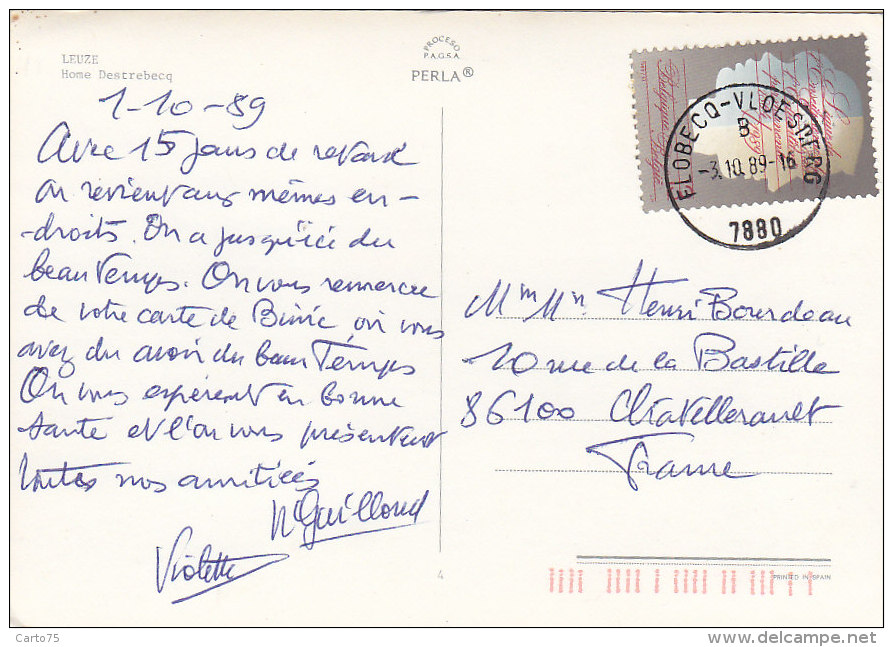 LEUZE
Home Destrebecq
PROCESO
P.A.G.S.A.
PERLA®
1-10-89
Avec 15 jours de retard
on revient aux mêmes en-
-droits. On a jusqu'ici du
beau temps. On vous remercie
de votre carte de Binic, où vous
avez du avoir du beau Temps
On vous espèrent en bonne
santé et l'on vous présentent
toutes nos amitiées
Guilloud
Violette
FLOBECQ-VLOESBERG
B
-3.10.89-16
7880
Mm Mr. Henri Bourdeau
10 rue de la Bastille
86100 Chatellerault
France
4
PRINTED IN SPAIN
Carto75